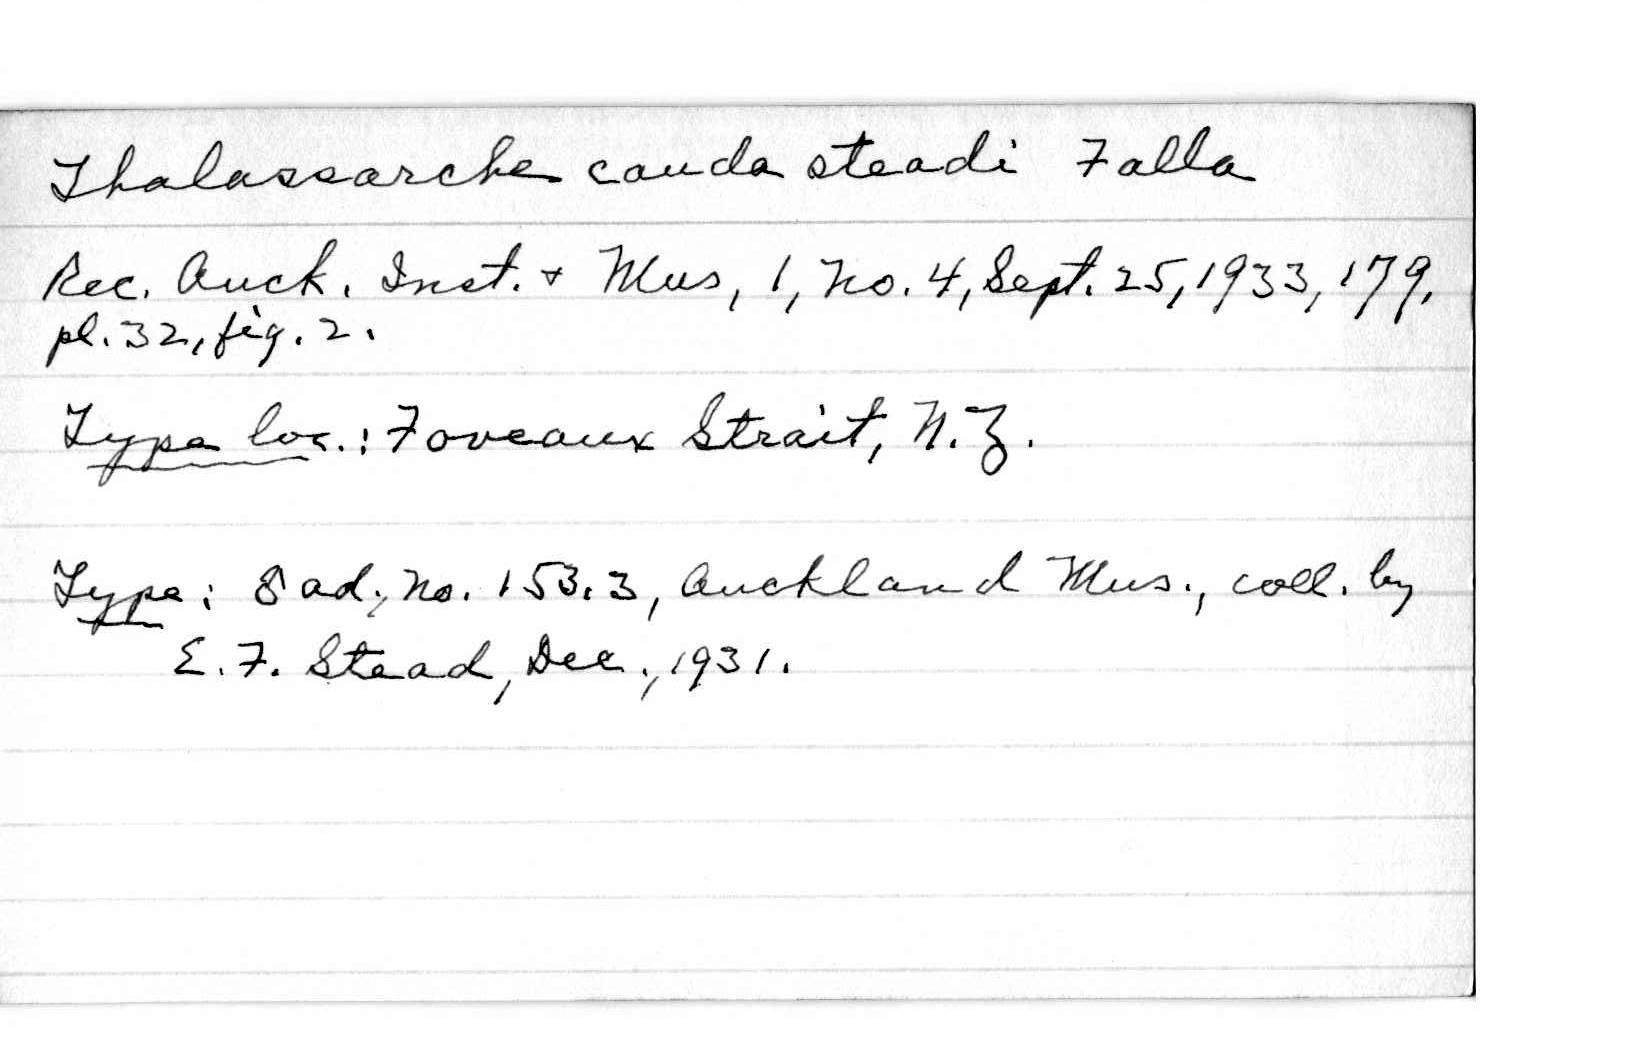 Thalassarche cauda steadi Falla
Rec. Auck. Inst. + Mus, 1, no. 4, Sept. 25, 1933, 179,
pl. 32, fig. 2.
Type loc.: Foveaux Strait, N.Z.
Type: ad., no. 153.3, Auckland Mus., coll. by
E. F. Stead, Dec., 1931.